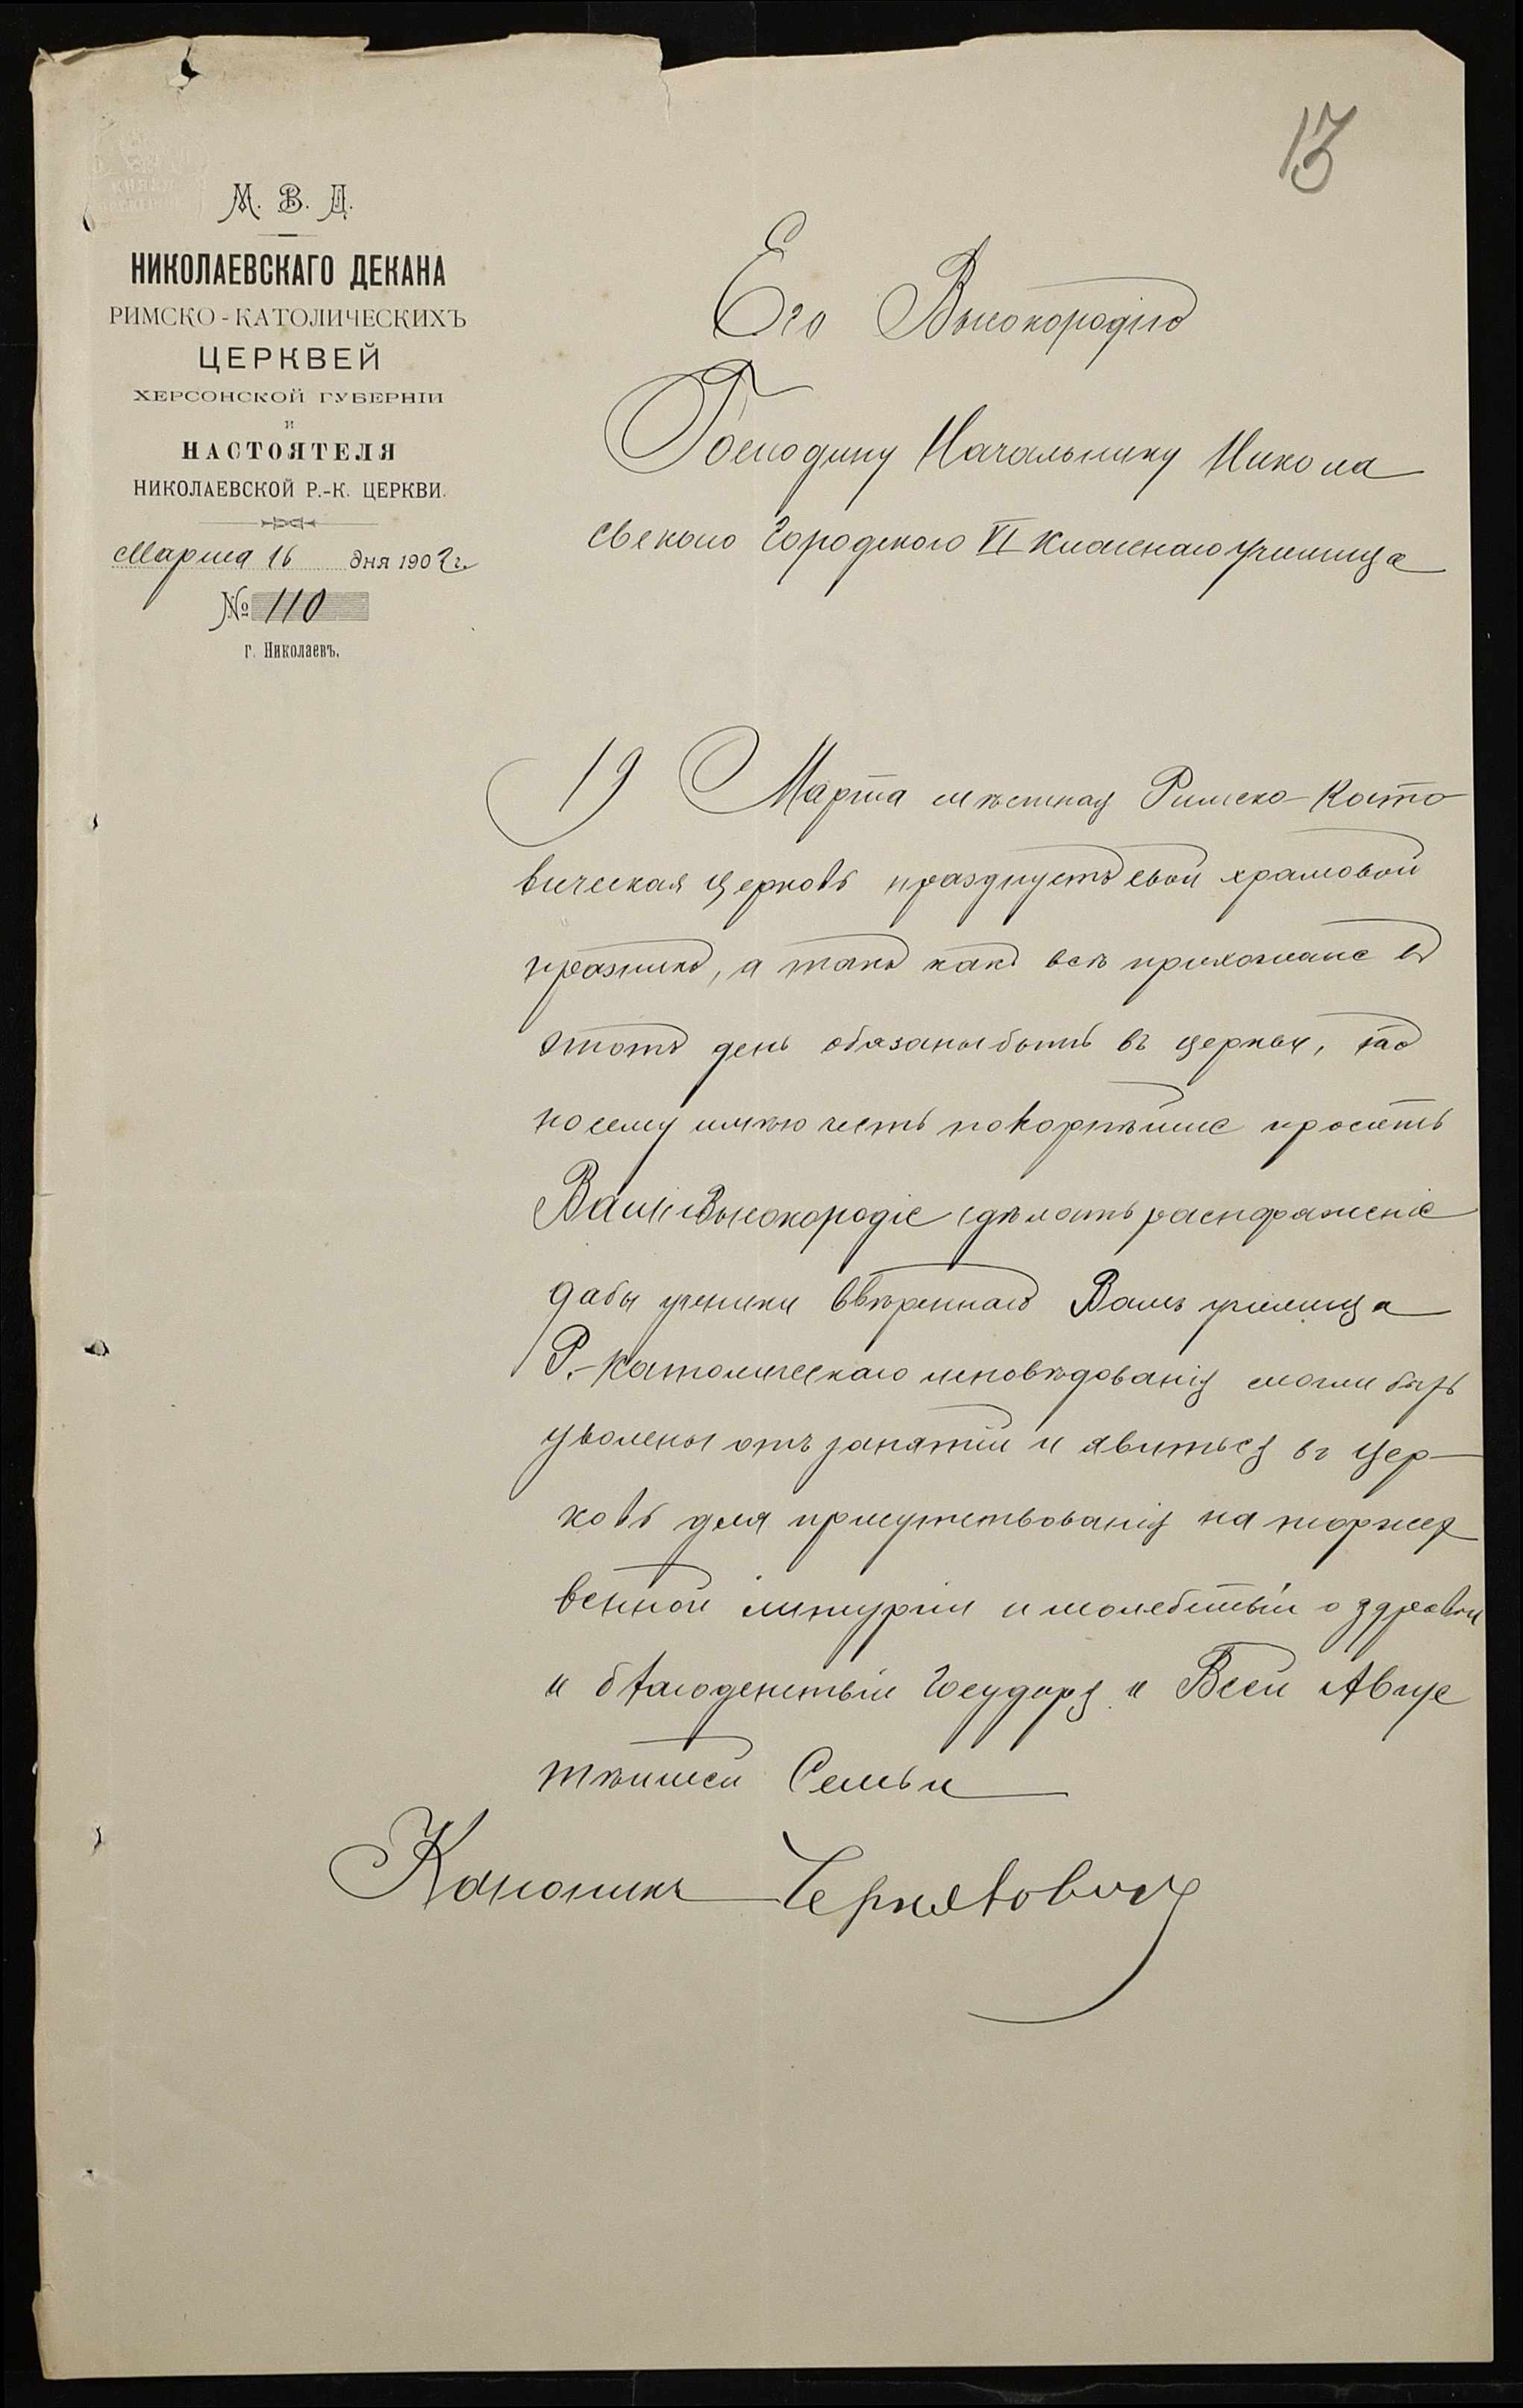 13
М. В. Д.
НИКОЛАЕВСКАГО ДЕКАНА
РИМСКО-КАТОЛИЧЕСКИХЪ
ЦЕРКВЕЙ
ХЕРСОНСКОЙ ГУБЕРНІИ
и
НАСТОЯТЕЛЯ
НИКОЛАЕВСКОЙ Р.-К. ЦЕРКВИ.
Марта 16 дня 1902 г.
№ 110
г. Николаевъ.
Его Высокородію
Господину Начальнику Никола
евскаго Городского VI класснаго училища
19 Марта мѣстная Римско-Като
лическая церковь празднуетъ свой храмовой
празникъ, а такъ какъ всѣ прихожане въ
этотъ день обязаны быть въ церкви,
посему имѣю честь покорнѣйше просить
Ваше Высокородіе сдѣлать распоряженіе
дабы ученики ввѣреннаго Вамъ училища
Р.-Католическаго исповѣдованія могли быть
уволены отъ занятій и явиться въ цер-
ковь для присутствованія на торжест
венной литургіи и молебствіи о здравіи
и благоденствіи Государя и Всей Авгус
тѣйшей Семьи
Каноникъ Черняховичъ